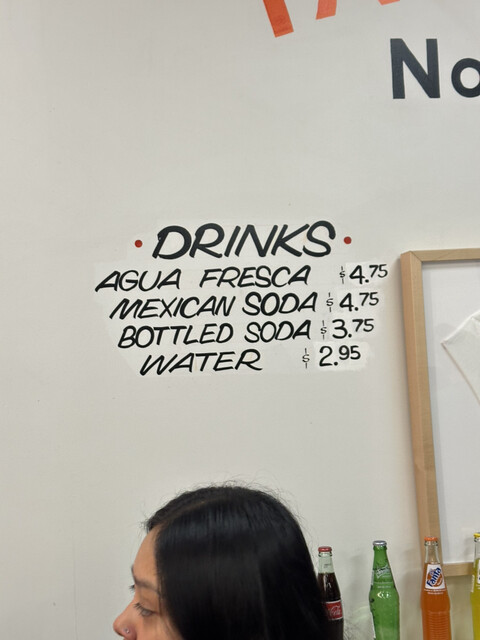 No
• DRINKS •
AGUA FRESCA $4.75
MEXICAN SODA $4.75
BOTTLED SODA $3.75
WATER $2.95
Fanta